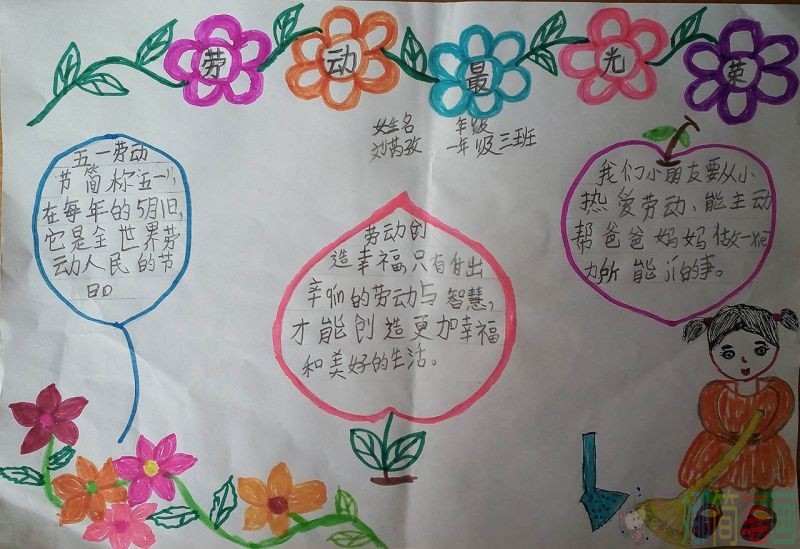 劳动最光荣
女生名 年级
刘芮孜 一年级三班
五一劳动
节简称五一,
在每年的5月1日,
它是全世界劳
动人民的节
日。
劳动创
造幸福,只有付出
辛qin的劳动与智慧,
才能创造更加幸福
和美好的生活。
我们小朋友要从小
热爱劳动、能主动
帮爸爸妈妈做一些
力所能ji的事。